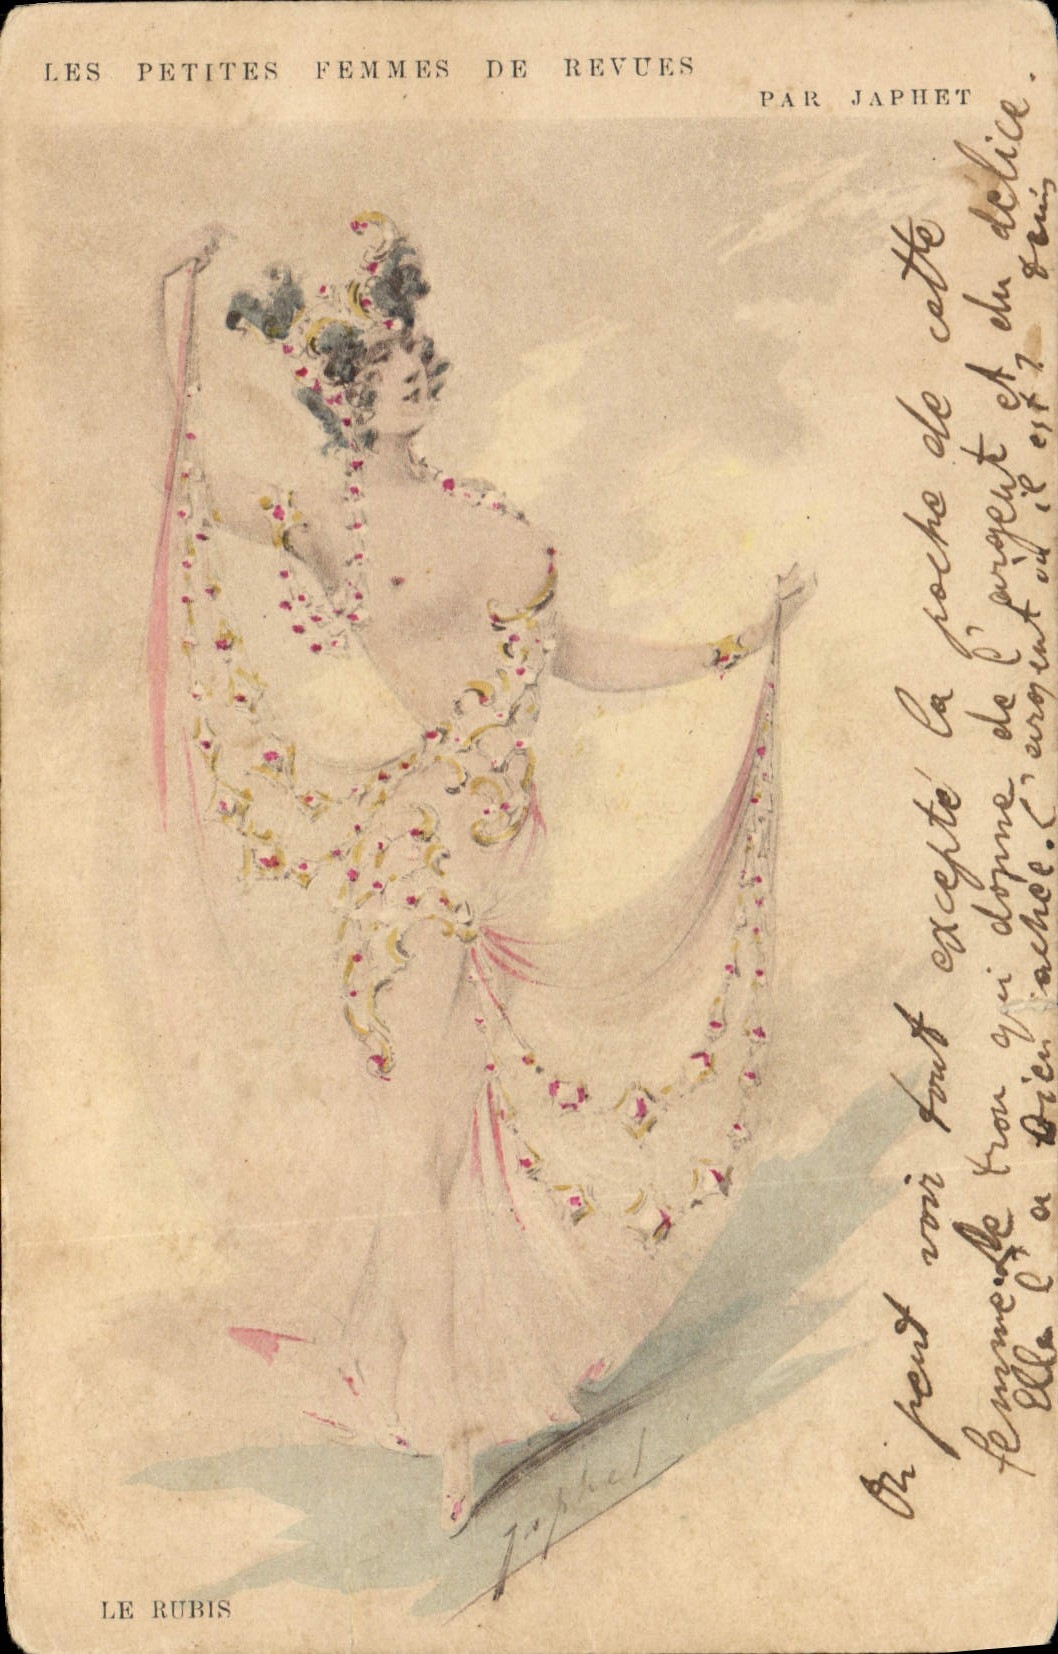 LES PETITES FEMMES DE REVUES
PAR JAPHET
On peut voir tout excepté la poche de cette
femme. Le trou qui donne de l'argent et du délice.
Elle l'a bien cachée. L'argent où il est ?
Japhet
LE RUBIS